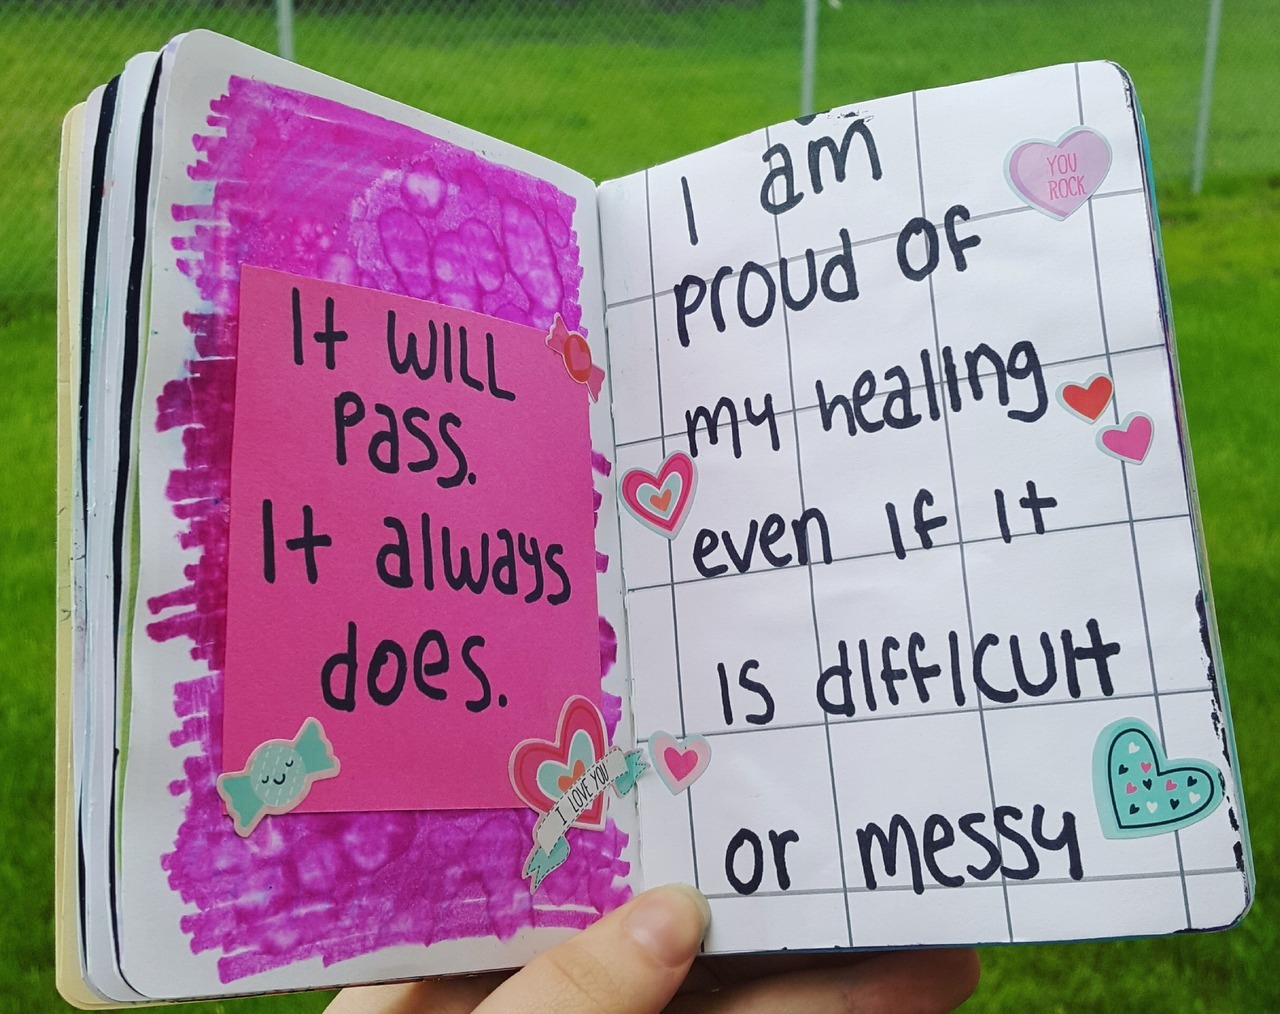 It WILL
Pass.
It always
does.
I LOVE YOU
I am
proud of
my healing
even if it
is difficult
or messy
YOU
ROCK